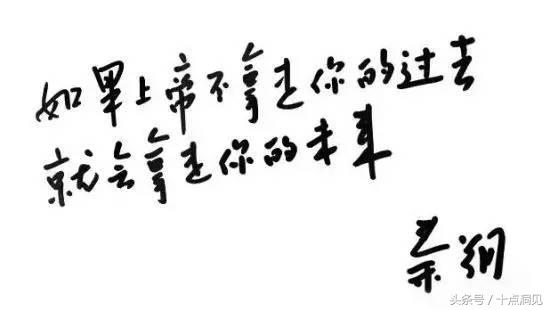 如果上帝不拿走你的过去
就会拿走你的未来
荣翔
头条号 / 十点洞见